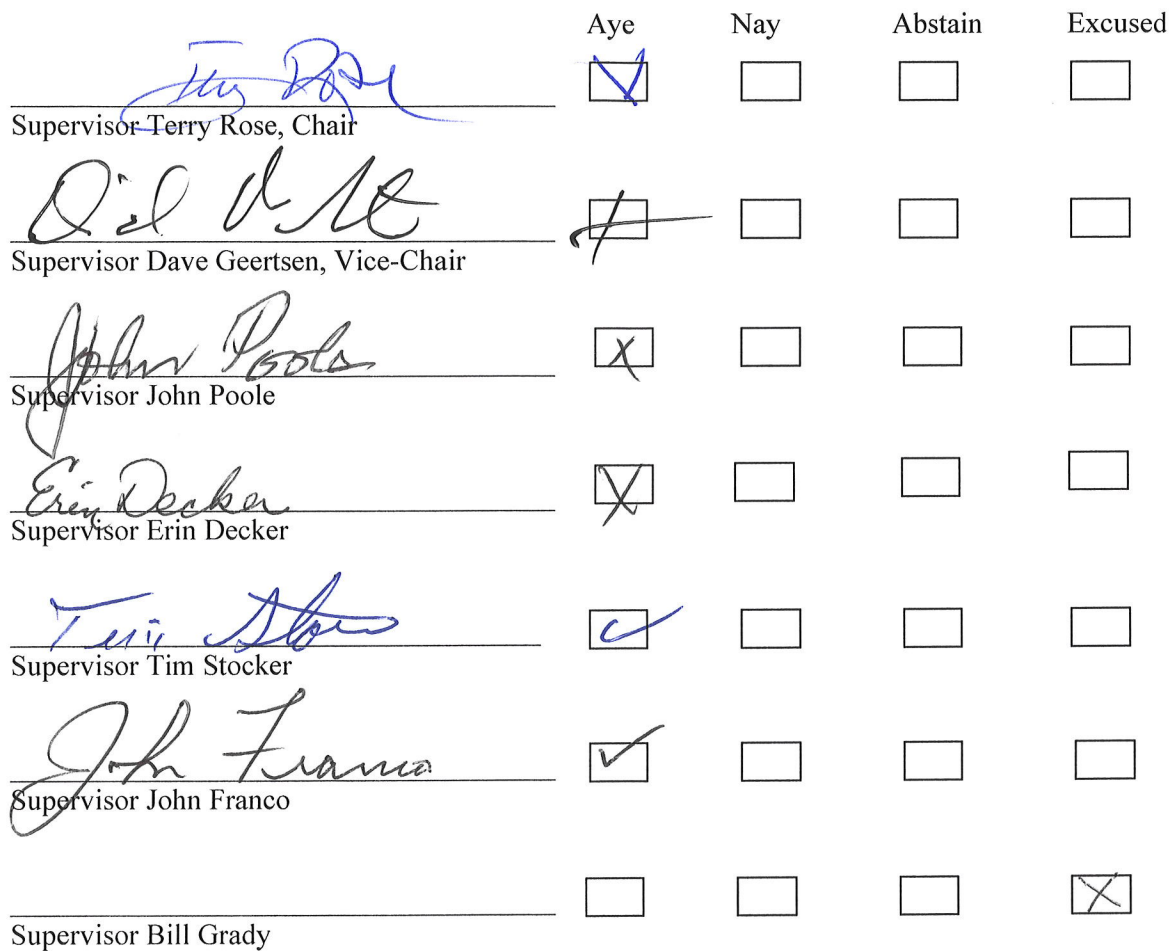 Aye Nay Abstain Excused
Terry Rose
Supervisor Terry Rose, Chair
Supervisor Dave Geertsen, Vice-Chair
John Poole
Supervisor John Poole
Erin Decker
Supervisor Erin Decker
Supervisor Tim Stocker
John Franco
Supervisor John Franco
Supervisor Bill Grady